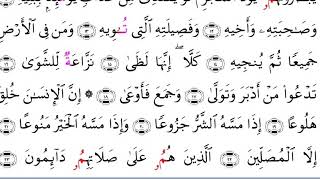 وَصَٰحِبَتِهِۦ وَأَخِيهِ ۝١٢ وَفَصِيلَتِهِ ٱلَّتِي تُـْٔوِيهِ ۝١٣ وَمَن فِي ٱلْأَرْضِ
جَمِيعًا ثُمَّ يُنجِيهِ ۝١٤ كَلَّآ ۖ إِنَّهَا لَظَىٰ ۝١٥ نَزَّاعَةٌ لِّلشَّوَىٰ ۝١٦
تَدْعُوا۟ مَنْ أَدْبَرَ وَتَوَلَّىٰ ۝١٧ وَجَمَعَ فَأَوْعَىٰٓ ۝١٨ إِنَّ ٱلْإِنسَٰنَ خُلِقَ
هَلُوعًا ۝١٩ إِذَا مَسَّهُ ٱلشَّرُّ جَزُوعًا ۝٢٠ وَإِذَا مَسَّهُ ٱلْخَيْرُ مَنُوعًا ۝٢١
إِلَّا ٱلْمُصَلِّينَ ۝٢٢ ٱلَّذِينَ هُمُۥ عَلَىٰ صَلَاتِهِمُۥ دَآئِمُونَ ۝٢٣